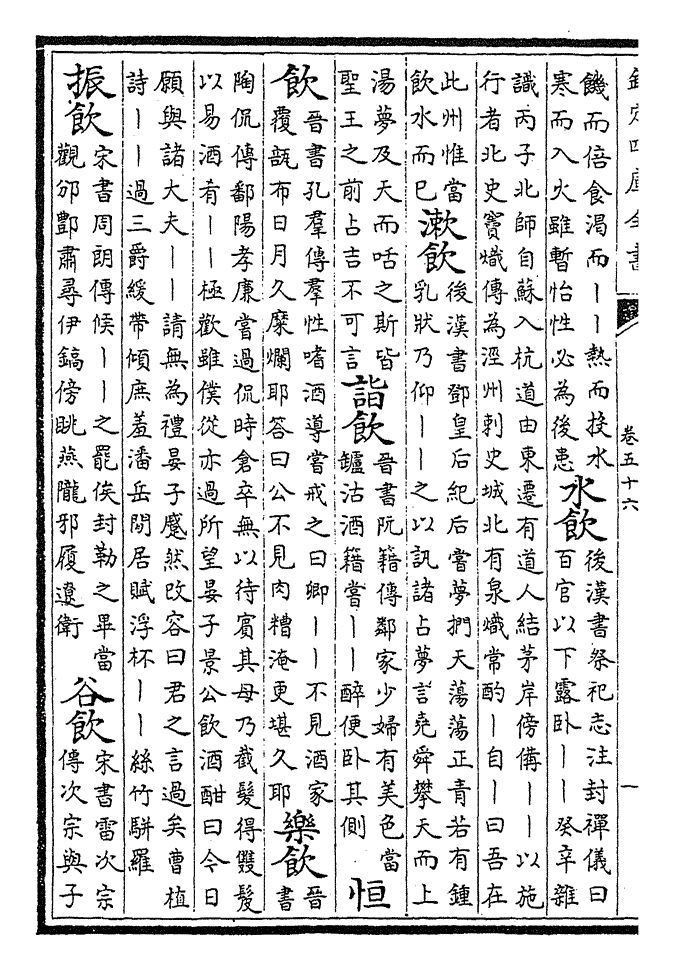 欽定四庫全書
卷五十六
一
饑而倍食渴而丨丨熱而投水
寒而入火雖暫怡性必為後患
水飲
後漢書祭祀志注封禪儀曰
百官以下露臥丨丨癸辛雜
識丙子北師自蘇入杭道由東遷有道人結茅岸傍備丨丨以施
行者北史竇熾傳為涇州刺史城北有泉熾常酌丨自丨曰吾在
此州惟當
飲水而已
漱飲
後漢書鄧皇后紀后嘗夢捫天蕩蕩正青若有鍾
乳狀乃仰丨丨之以訊諸占夢言堯舜攀天而上
湯夢及天而咶之斯皆
聖王之前占吉不可言
詣飲
晉書阮籍傳鄰家少婦有美色當
鑪沽酒籍嘗丨丨醉便臥其側
恒
飲
晉書孔羣傳羣性嗜酒導嘗戒之曰卿丨丨不見酒家
覆瓿布日月久糜爛耶答曰公不見肉糟淹更堪久耶
樂飲
晉
書
陶侃傳鄱陽孝廉嘗過侃時倉卒無以待賓其母乃截髮得雙髲
以易酒肴丨丨極歡雖僕從亦過所望晏子景公飲酒酣曰今日
願與諸大夫丨丨請無為禮晏子蹙然改容曰君之言過矣曹植
詩丨丨過三爵緩帶傾庶羞潘岳閒居賦浮杯丨丨絲竹駢羅
振飲
宋書周朗傳候丨丨之罷俟封勒之畢當
觀邠酆肅尋伊鎬傍眺燕隴邪履遼衛
谷飲
宋書雷次宗
傳次宗與子